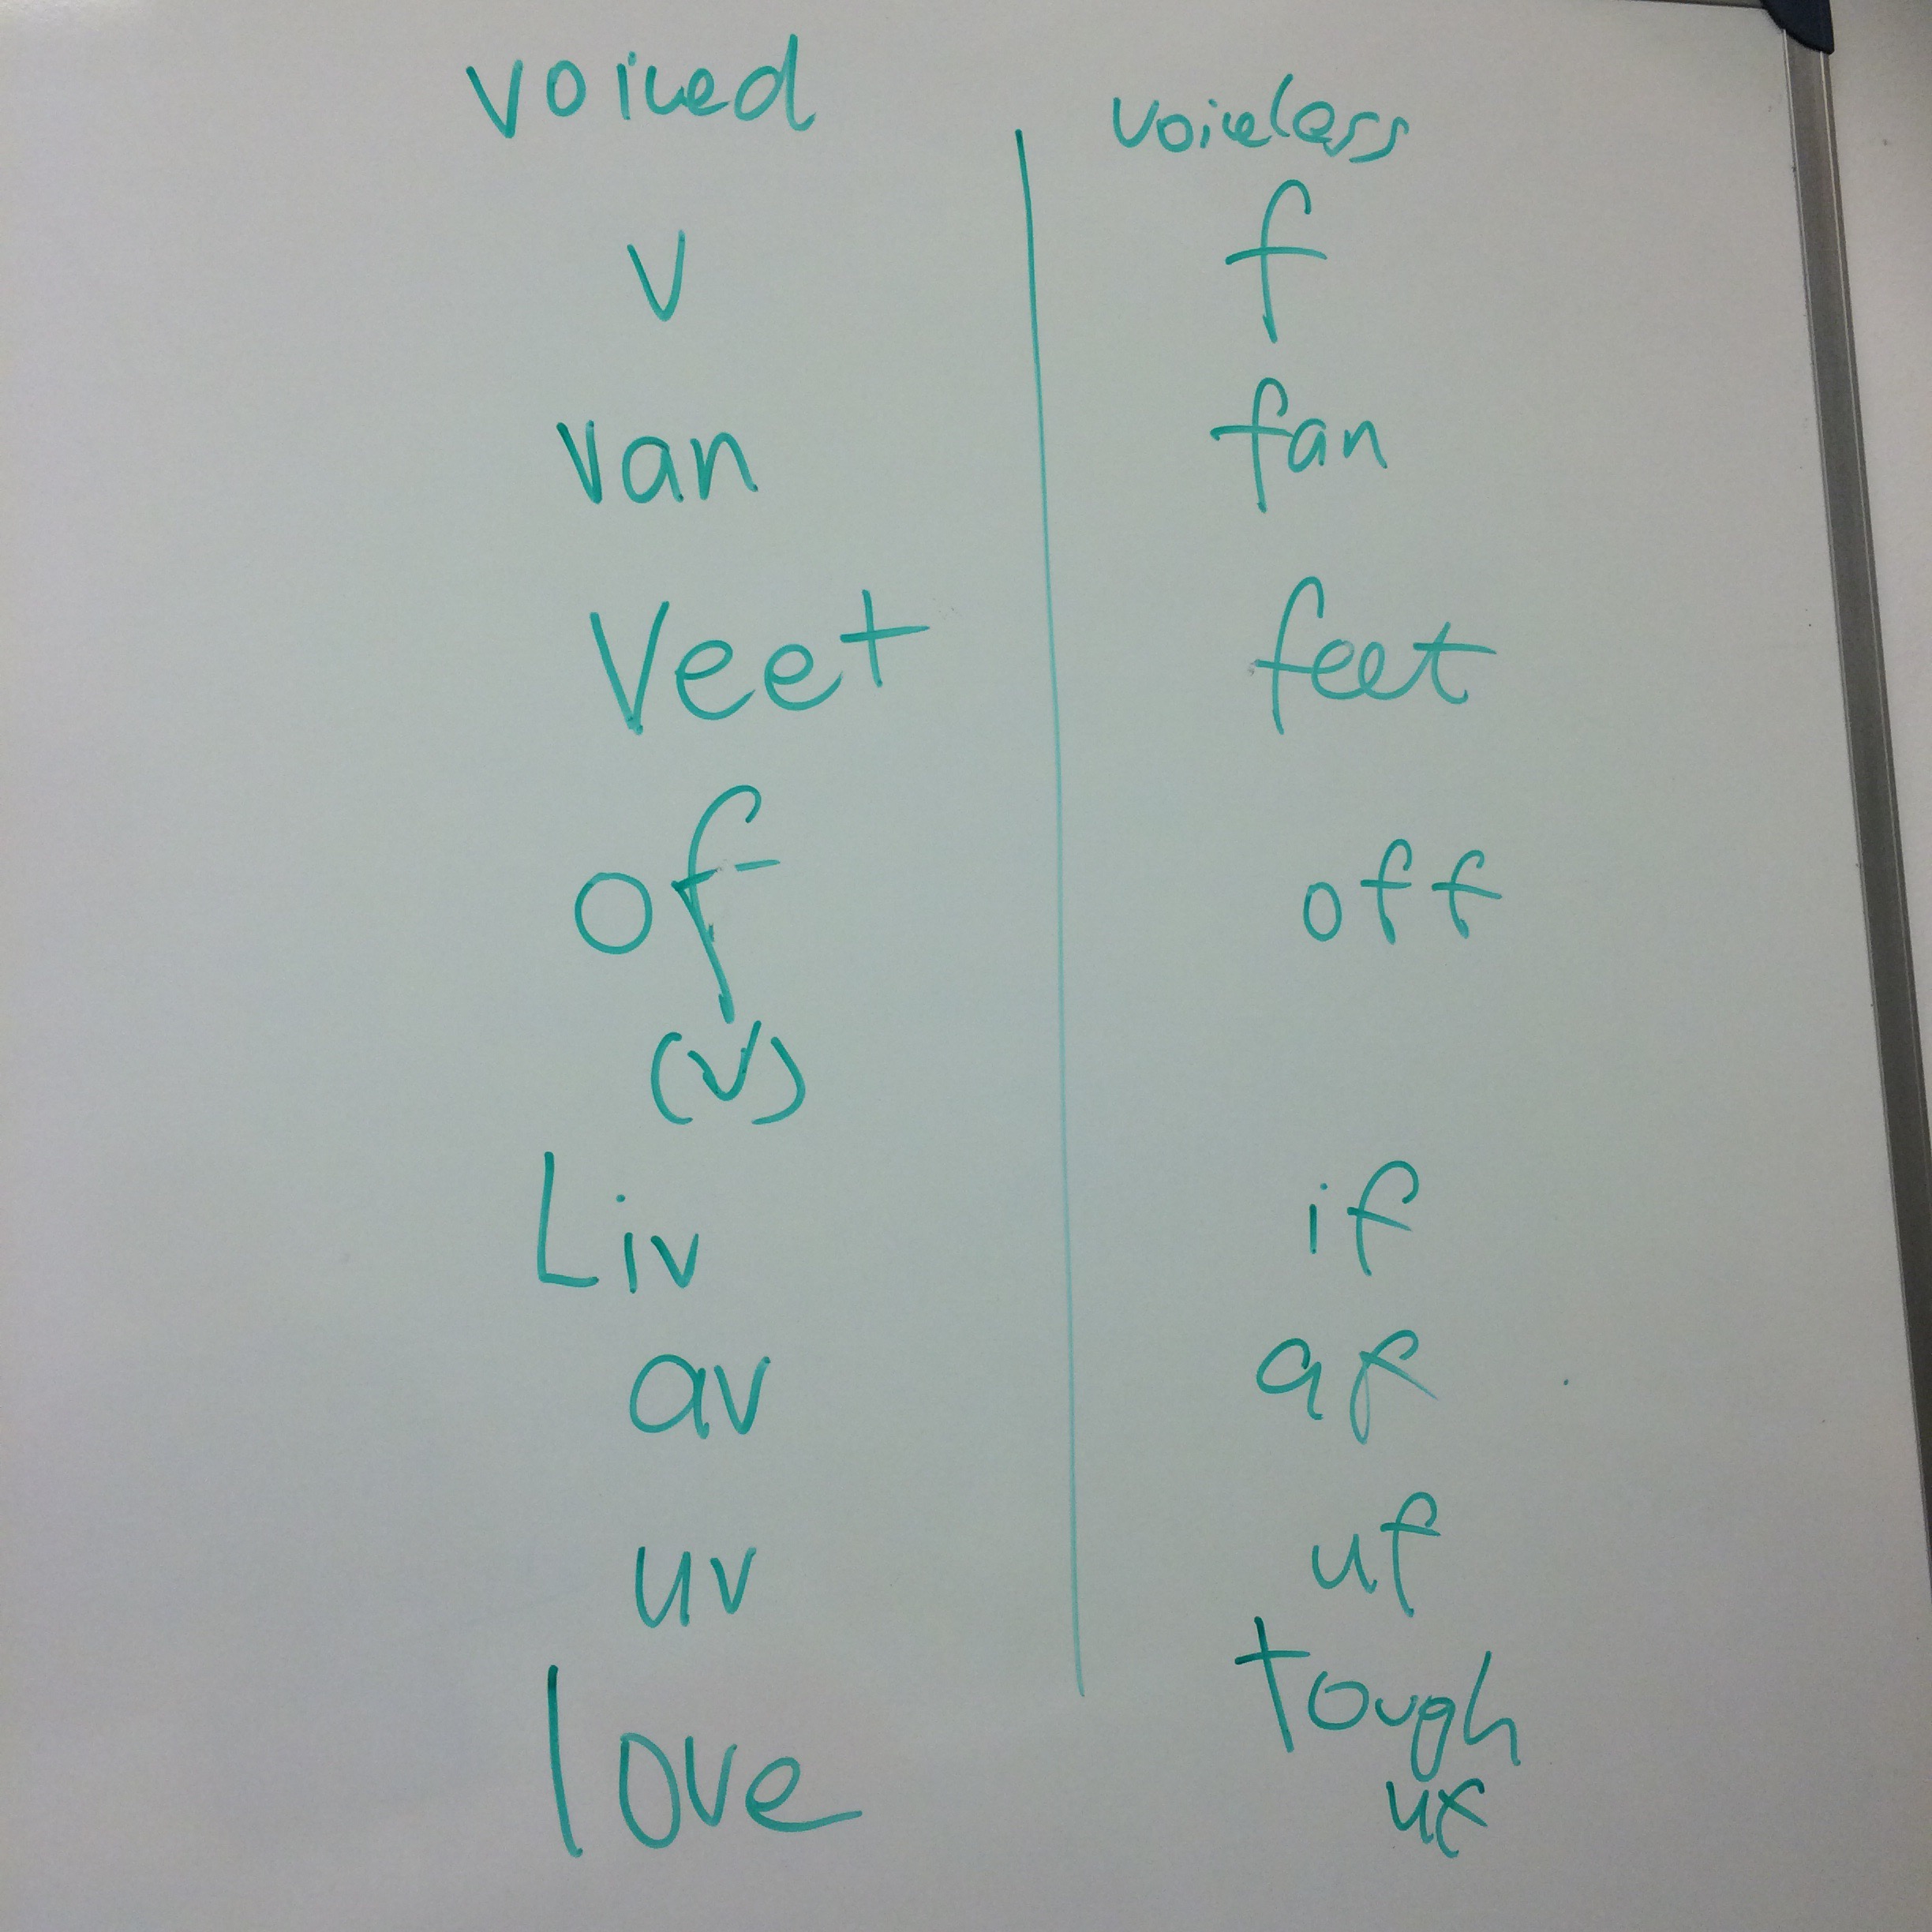 voiced voiceless
v f
van fan
Veet feet
of off
(v)
Liv if
av af
uv uf
love tough
uf